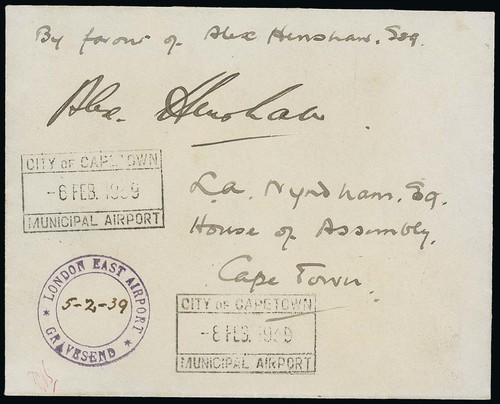 By favour of Alex Henshaw. Esq.
Alex. Henshaw
CITY OF CAPETOWN
-6 FEB. 1939
MUNICIPAL AIRPORT
L.a. Wyndham. Esq.
House of Assembly.
Cape Town.
* LONDON EAST AIRPORT *
5-2-39
GRAVESEND
CITY OF CAPETOWN
-8 FEB. 1939
MUNICIPAL AIRPORT